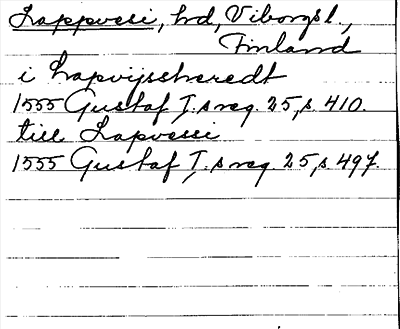 Lappvesi, hd, Viborgsl.,
Finland
i Lapvijscheredt
1555 Gustaf I:s reg. 25, s. 410.
till Lapvessi
1555 Gustaf I:s reg. 25, s. 497.